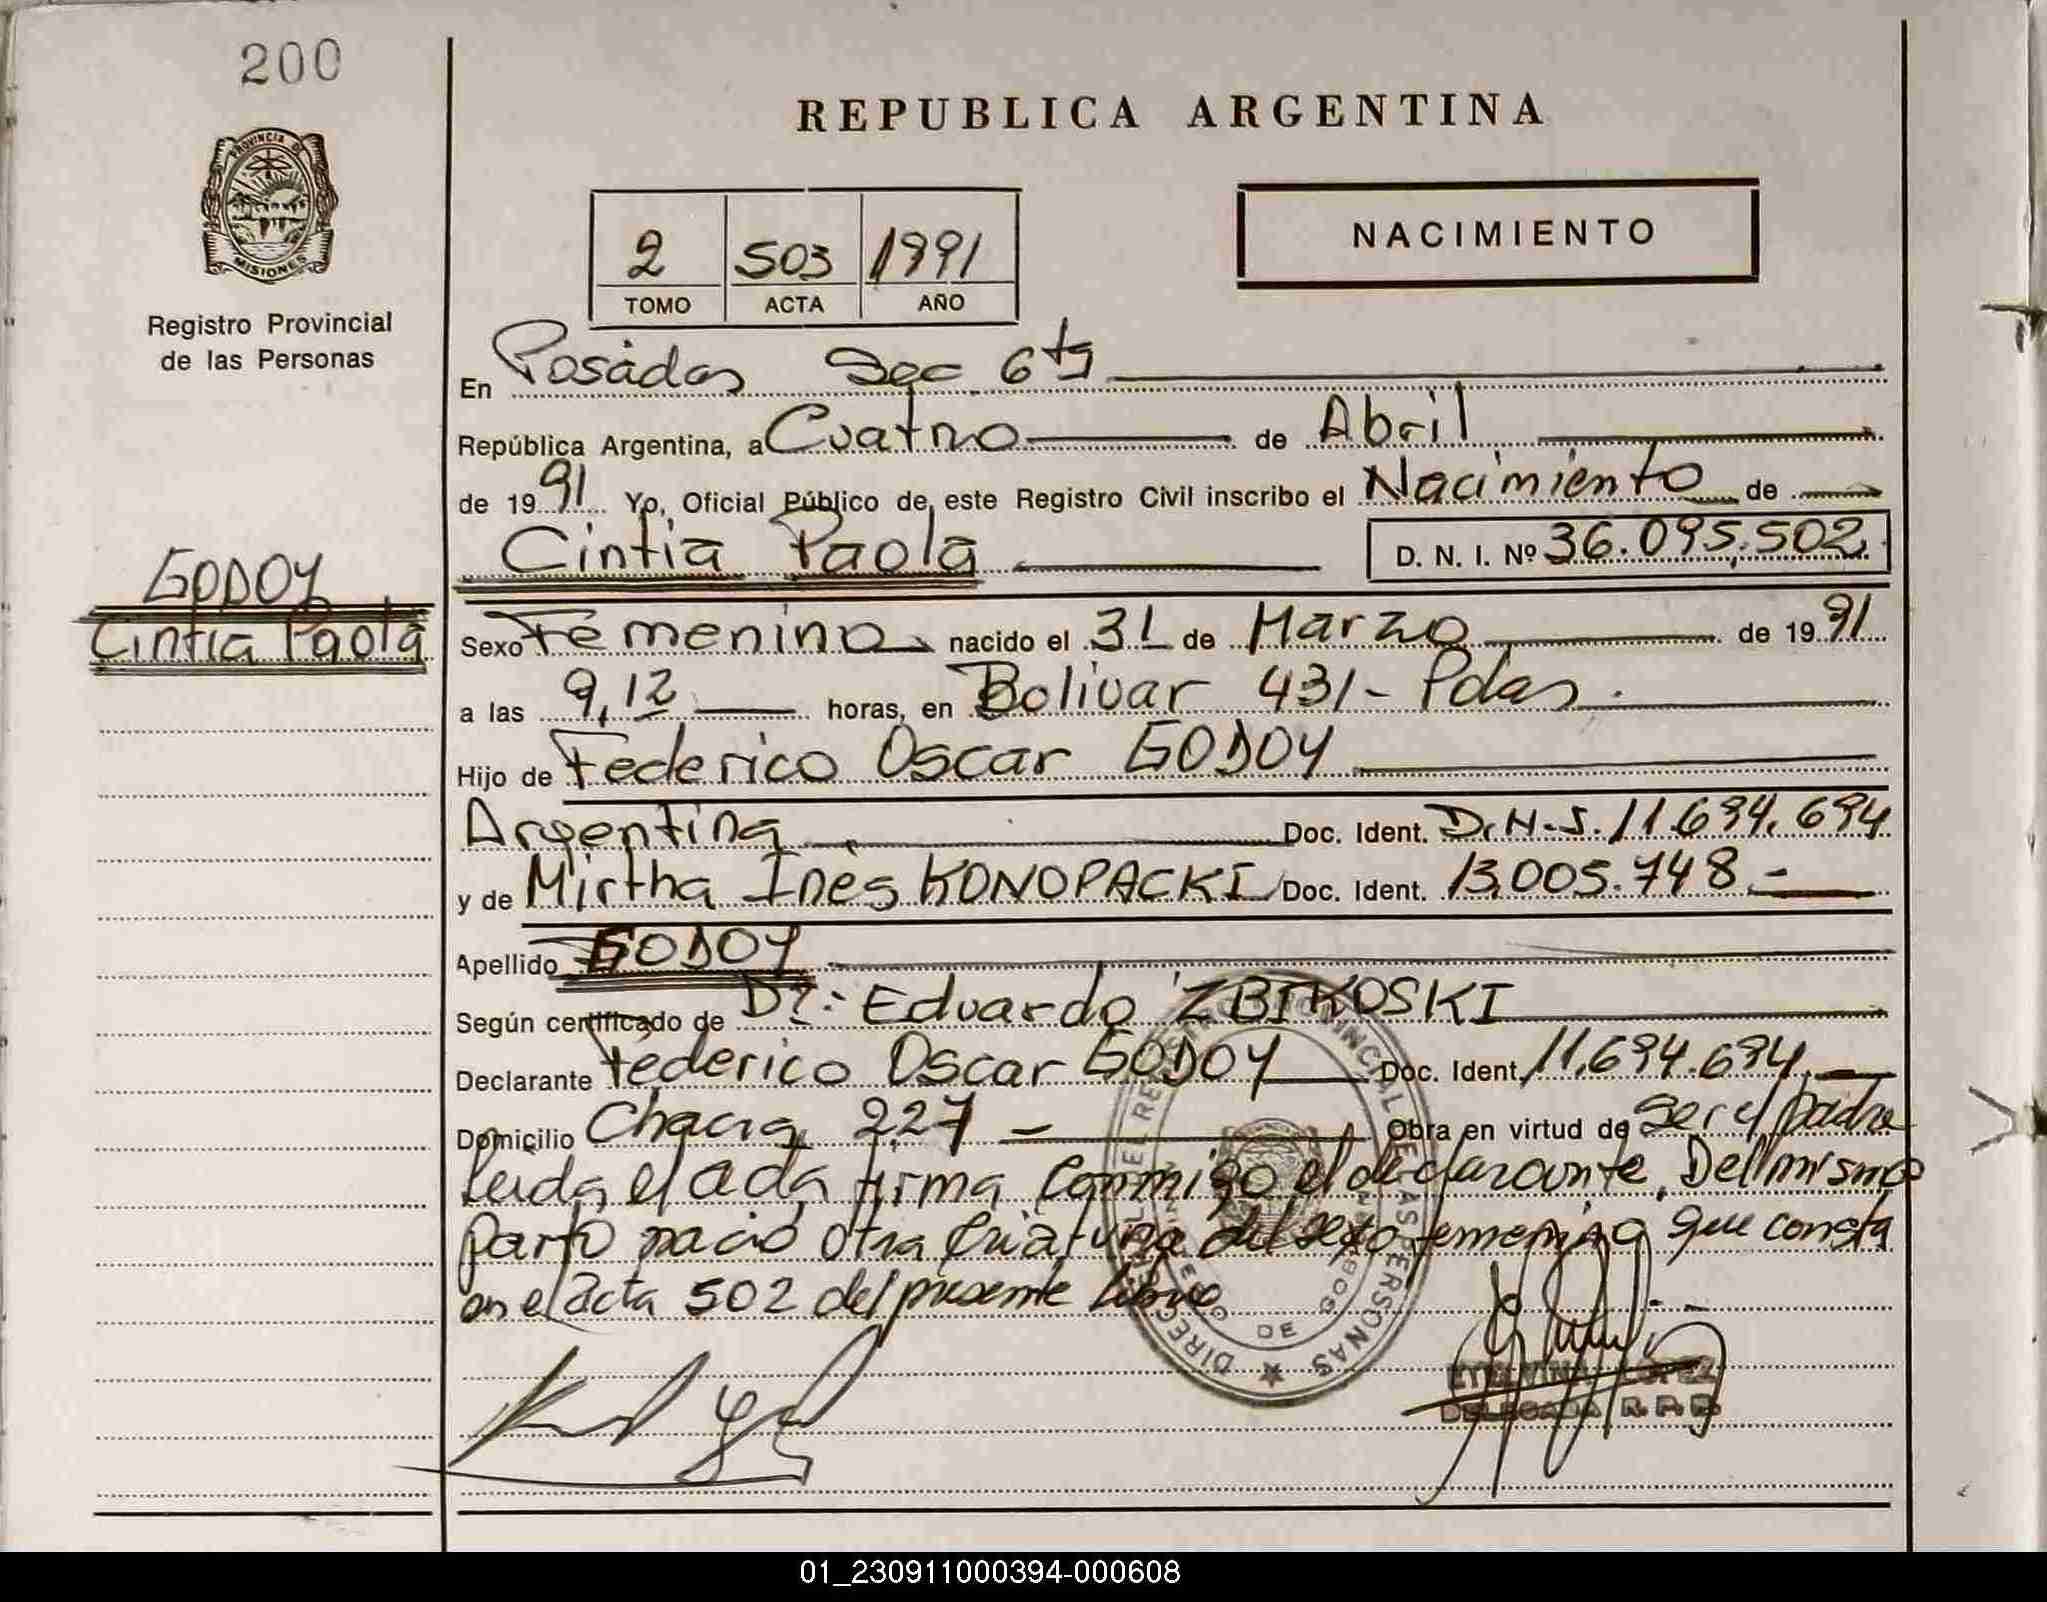 200
REPUBLICA ARGENTINA
PROVINCIA DE
MISIONES
Registro Provincial
de las Personas
2 503 1991
TOMO ACTA AÑO
NACIMIENTO
En Posadas Sec 6ta
República Argentina, a Cuatro de Abril
de 1991 Yo, Oficial Público de este Registro Civil inscribo el Nacimiento de
Cintia Paola D. N. I. Nº 36.095.502
GODOY
Cintia Paola
Sexo Femenino nacido el 31 de Marzo de 1991
a las 9,12 horas, en Bolivar 431- Pdas.
Hijo de Federico Oscar GODOY
Argentina Doc. Ident. D.N.I. 11.694.694
y de Mirtha Inès KONOPACKI Doc. Ident. 13.005.748.-
Apellido GODOY
Según certificado de Dr.: Eduardo ZBIKOSKI
Declarante Federico Oscar GODOY Doc. Ident. 11.694.694
Domicilio 227 - Obra en virtud de ser el padre
Leida el acta firma conmigo el declarante. Del mismo
parto nació otra criatura del sexo femenino que consta
en el acta 502 del presente libro
ETELVINA LOPEZ
DELEGADA R.P.P.
01_230911000394-000608